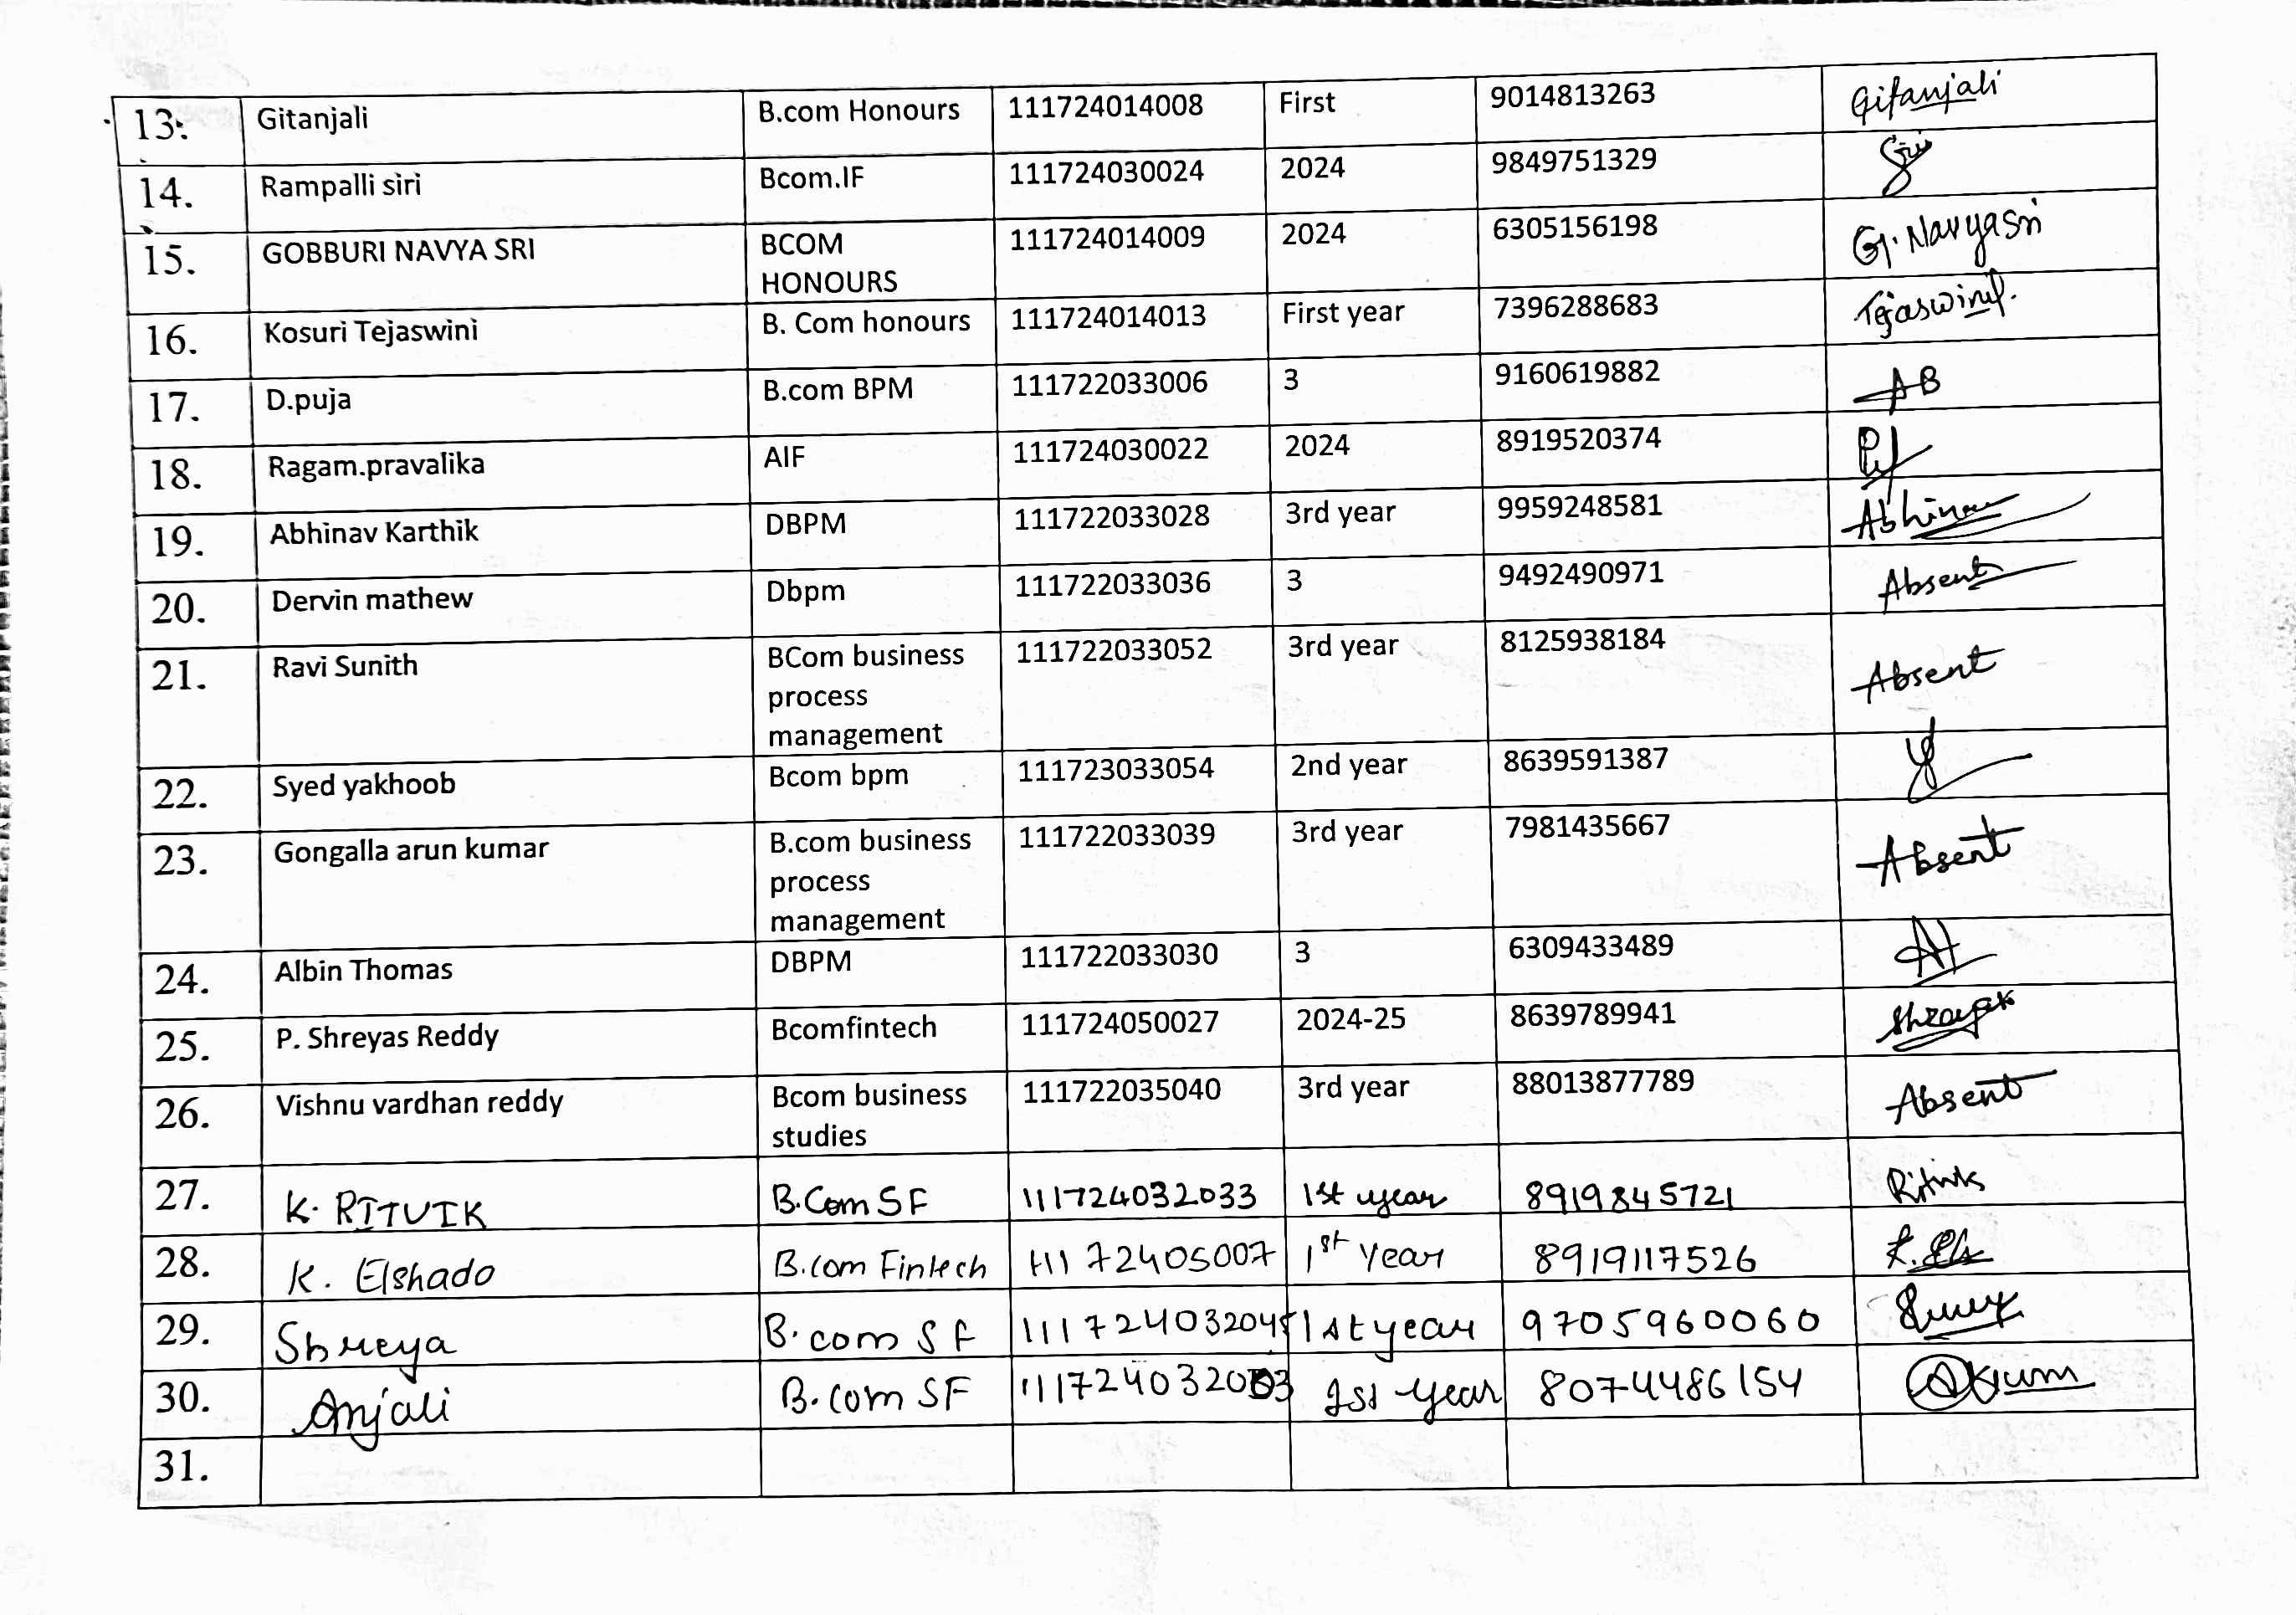 13. Gitanjali B.com Honours 111724014008 First 9014813263 Gitanjali
14. Rampalli siri Bcom.IF 111724030024 2024 9849751329 Siri
15. GOBBURI NAVYA SRI BCOM 111724014009 2024 6305156198 G. Navyasri
HONOURS
16. Kosuri Tejaswini B. Com honours 111724014013 First year 7396288683 Tejaswini.
17. D.puja B.com BPM 111722033006 3 9160619882 AB
18. Ragam.pravalika AIF 111724030022 2024 8919520374
19. Abhinav Karthik DBPM 111722033028 3rd year 9959248581 Abhinav
20. Dervin mathew Dbpm 111722033036 3 9492490971 Absent
21. Ravi Sunith BCom business 111722033052 3rd year 8125938184 Absent
process
management
22. Syed yakhoob Bcom bpm 111723033054 2nd year 8639591387
23. Gongalla arun kumar B.com business 111722033039 3rd year 7981435667 Absent
process
management
24. Albin Thomas DBPM 111722033030 3 6309433489
25. P. Shreyas Reddy Bcomfintech 111724050027 2024-25 8639789941
26. Vishnu vardhan reddy Bcom business 111722035040 3rd year 88013877789 Absent
studies
27. K. RITVIK B.Com SF 111724032033 1st year 8919845721
28. K. Elshado B.Com Fintech 11172405007 1st Year 8919117526
29. Shreya B.com SF 1st year 9705960060
30. Anjali B.com SF 1st year 8074486154
31.